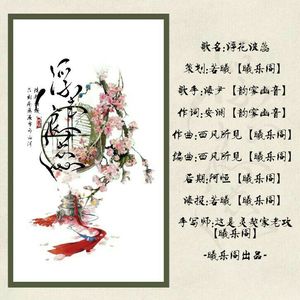 歌名:浮花浪蕊
策划:若曦【曦乐阁】
歌手:漆尹【韵家幽音】
作词:安澜【韵家幽音】
作曲:西风所見【曦乐阁】
编曲:西风所見【曦乐阁】
后期:阿恒【曦乐阁】
海报:若曦【曦乐阁】
手写师:这是灵契家老攻
【曦乐阁】
-曦乐阁出品-